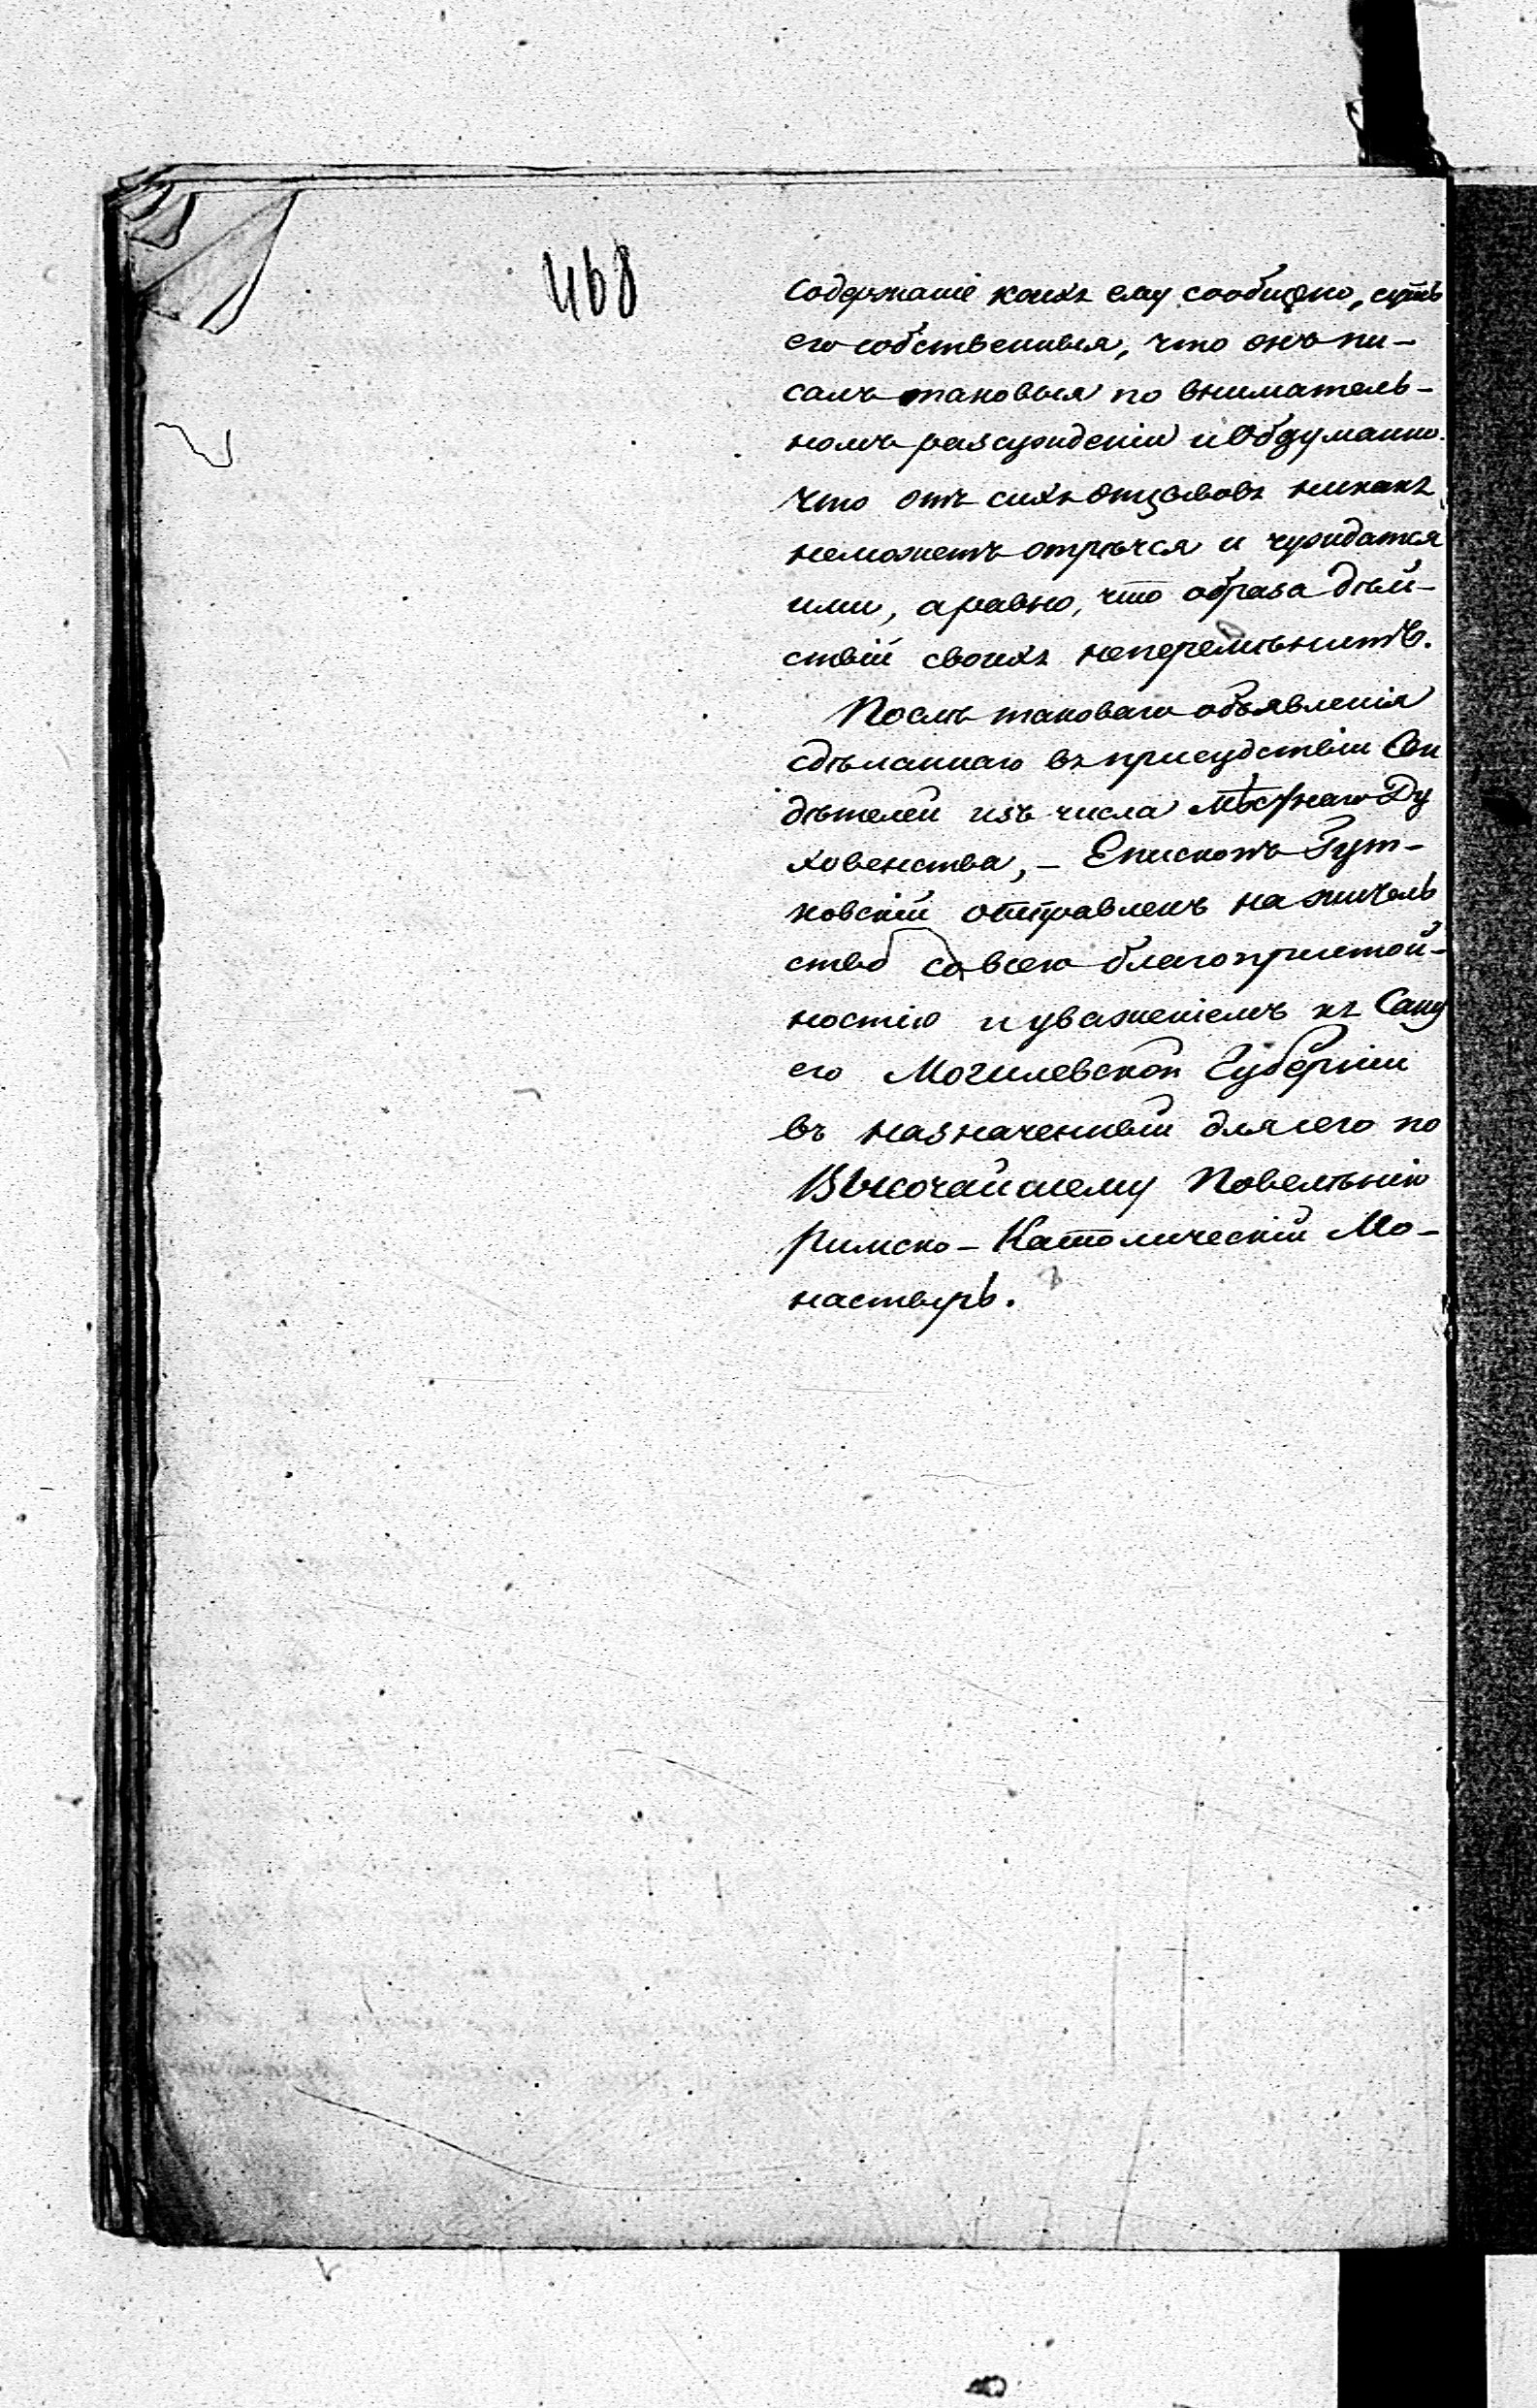 468
содержаніе коихъ ему сообщено, суть
его собственныя, что онъ пи-
салъ таковыя по вниматель-
номъ разсужденіи и обдуманно.
Что отъ сихъ отзывовъ никакъ
неможетъ отрѣчся и чуждатся
ими, а равно, что образа дѣй-
ствій своихъ неперемѣнитъ.
Послѣ таковаго объявленія
сдѣланнаго въ присудствіи Сви
дѣтелей изъ числа мѣстнаго Ду
ховенства, – Епископъ Гут-
ковскій отправленъ на житель
ство со всею благопристой-
ностію и уваженіемъ къ Сану
его Могилевской Губерніи
въ назначенный для сего по
Высочайшему Повелѣнію
Римско-Католическій Мо-
настырь.